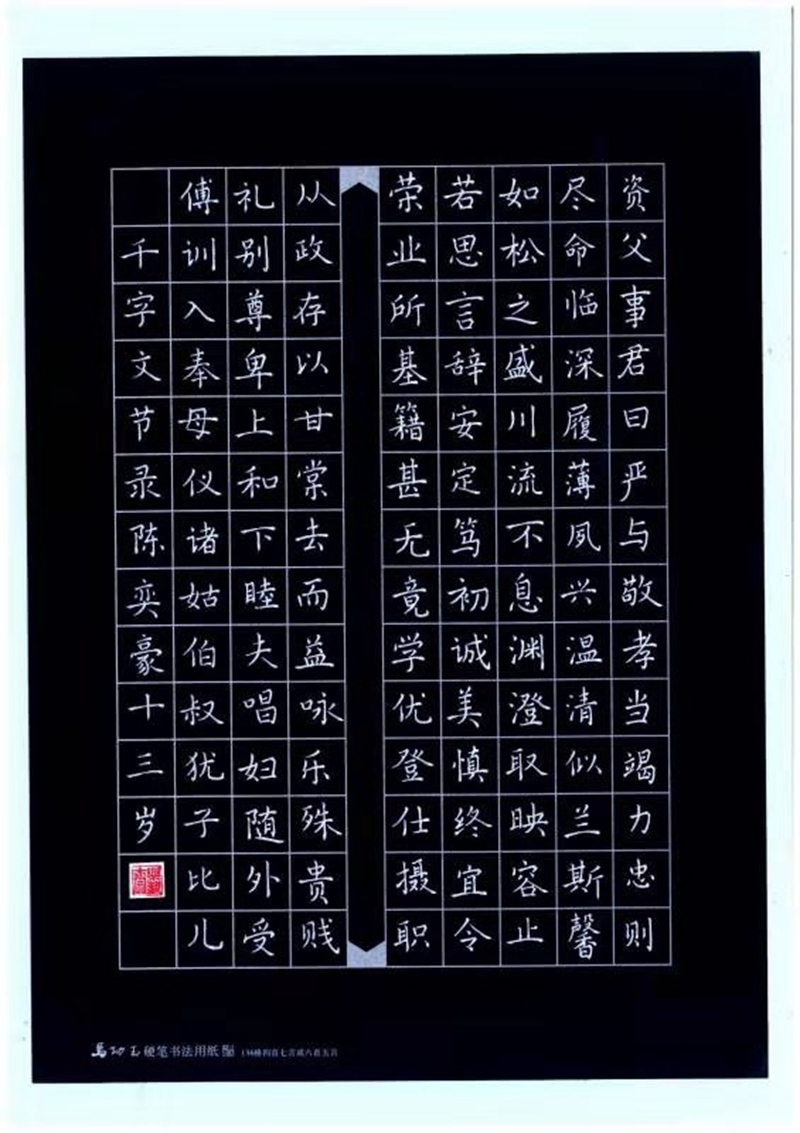 资父事君曰严与敬孝当竭力忠则
尽命临深履薄夙兴温清似兰斯馨
如松之盛川流不息渊澄取映容止
若思言辞安定笃初诚美慎终宜令
荣业所基籍甚无竟学优登仕摄职
从政存以甘棠去而益咏乐殊贵贱
礼别尊卑上和下睦夫唱妇随外受
傅训入奉母仪诸姑伯叔犹子比儿
千字文节录陈奕豪十三岁
硬笔书法用纸